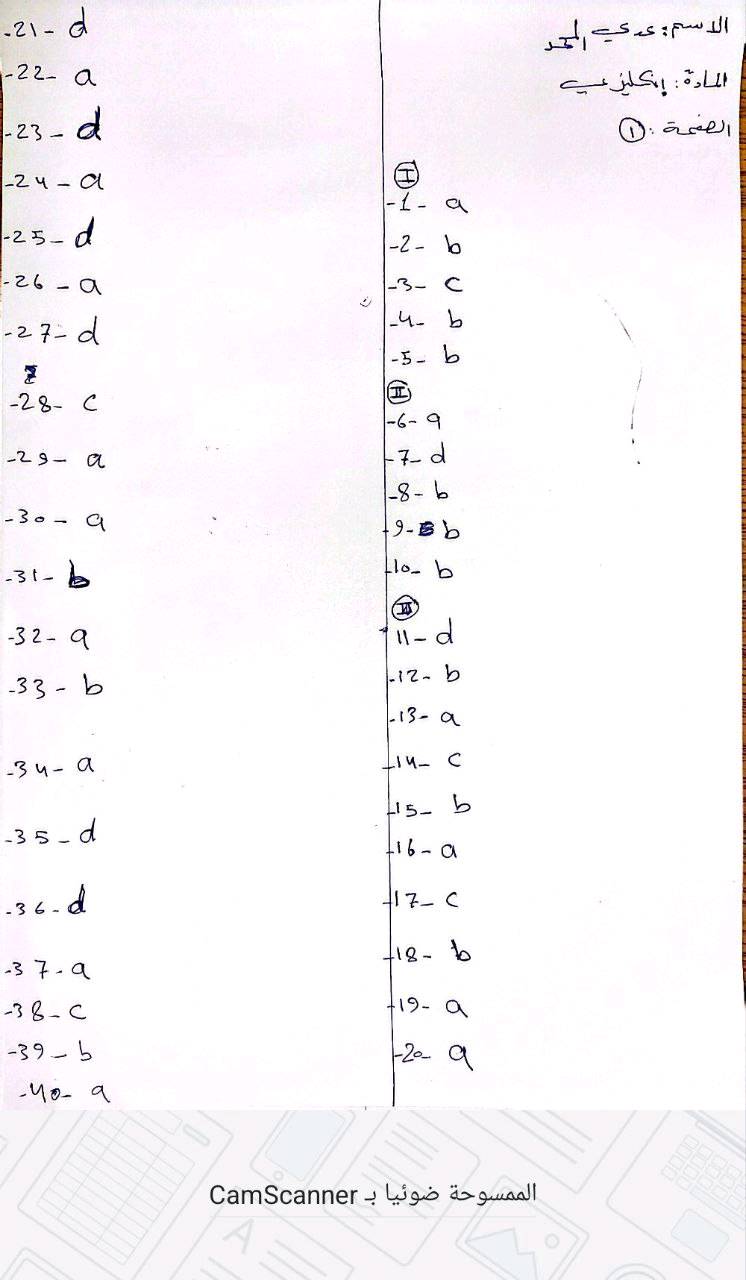 الاسم: عدي
المادة: إنكليزي
الصفحة: ١
I
-1- a
-2- b
-3- c
-4- b
-5- b
II
-6- a
-7- d
-8- b
-9- b
-10- b
III
11- d
-12- b
-13- a
-14- c
-15- b
-16- a
-17- c
-18- b
-19- a
-20- a
-21- d
-22- a
-23- d
-24- a
-25- d
-26- a
-27- d
-28- c
-29- a
-30- a
-31- b
-32- a
-33- b
-34- a
-35- d
-36- d
-37- a
-38- c
-39- b
-40- a
الممسوحة ضوئيا بـ CamScanner